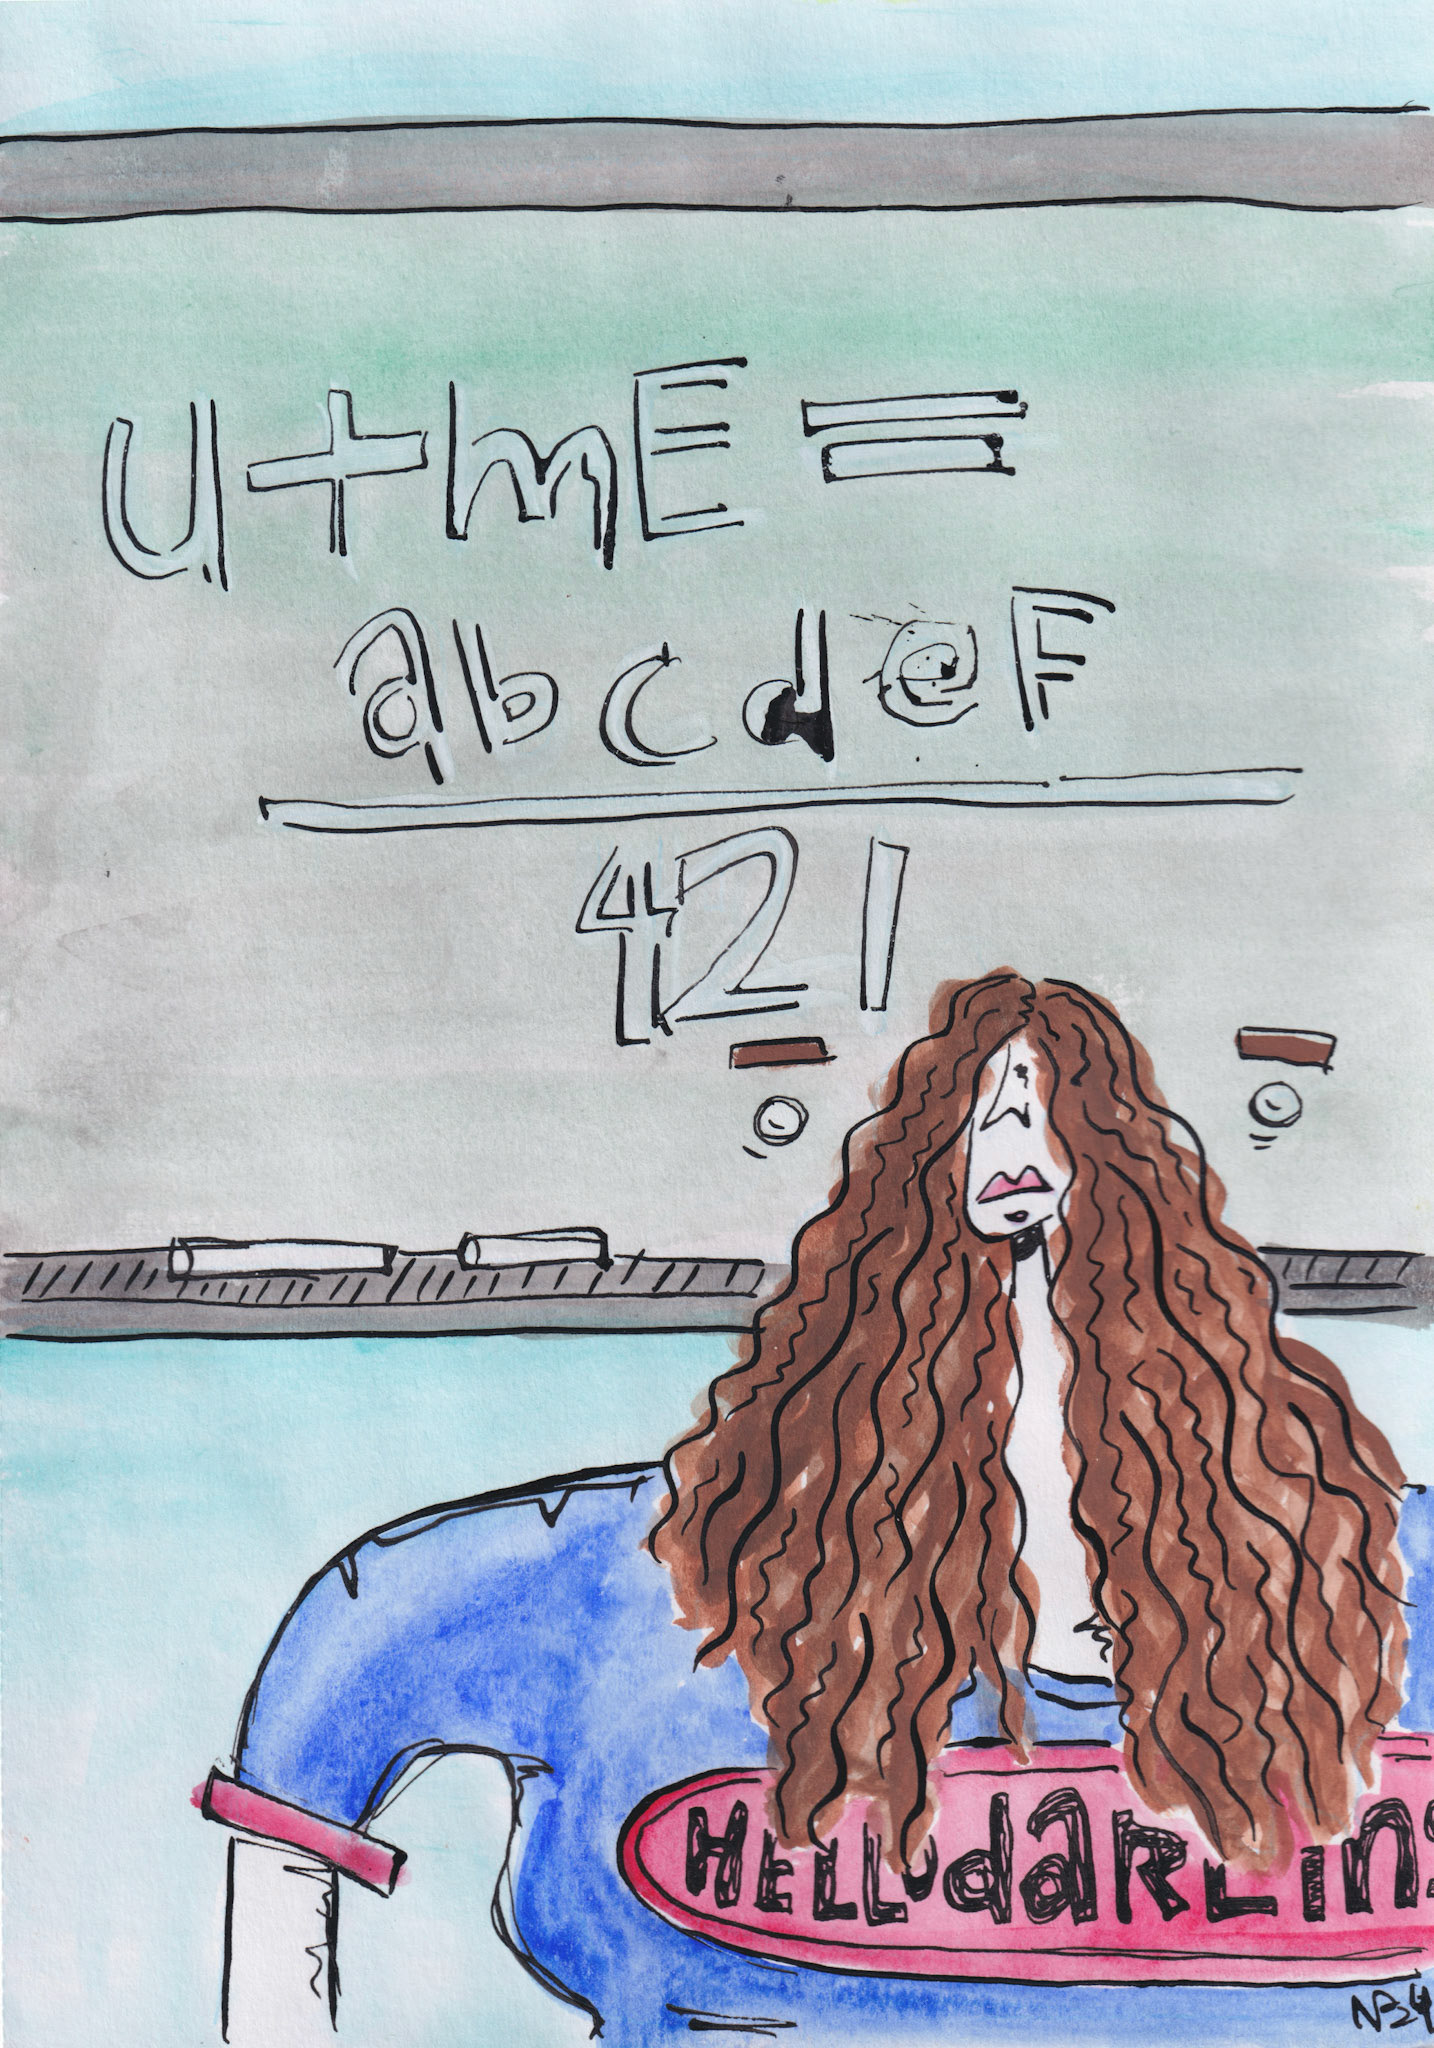 u+mE =
abcdeF
421
HELLO dARLINS
NP24